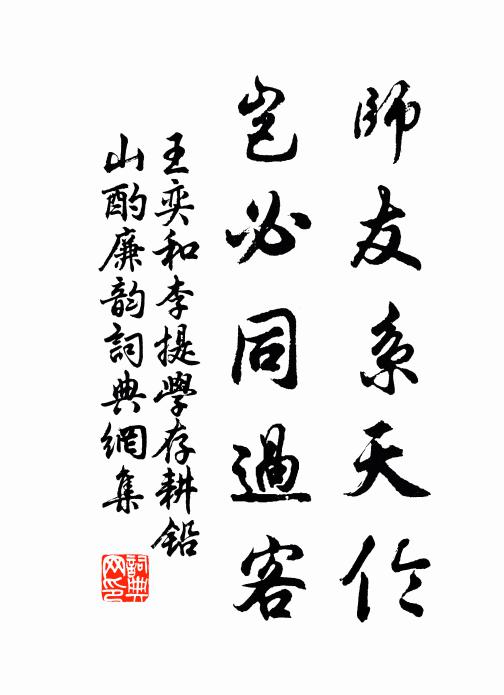 師友系天伦
豈必同過客
王奕和李提學存耕鉛
山酌廉韵詞典網集
詞典
网印